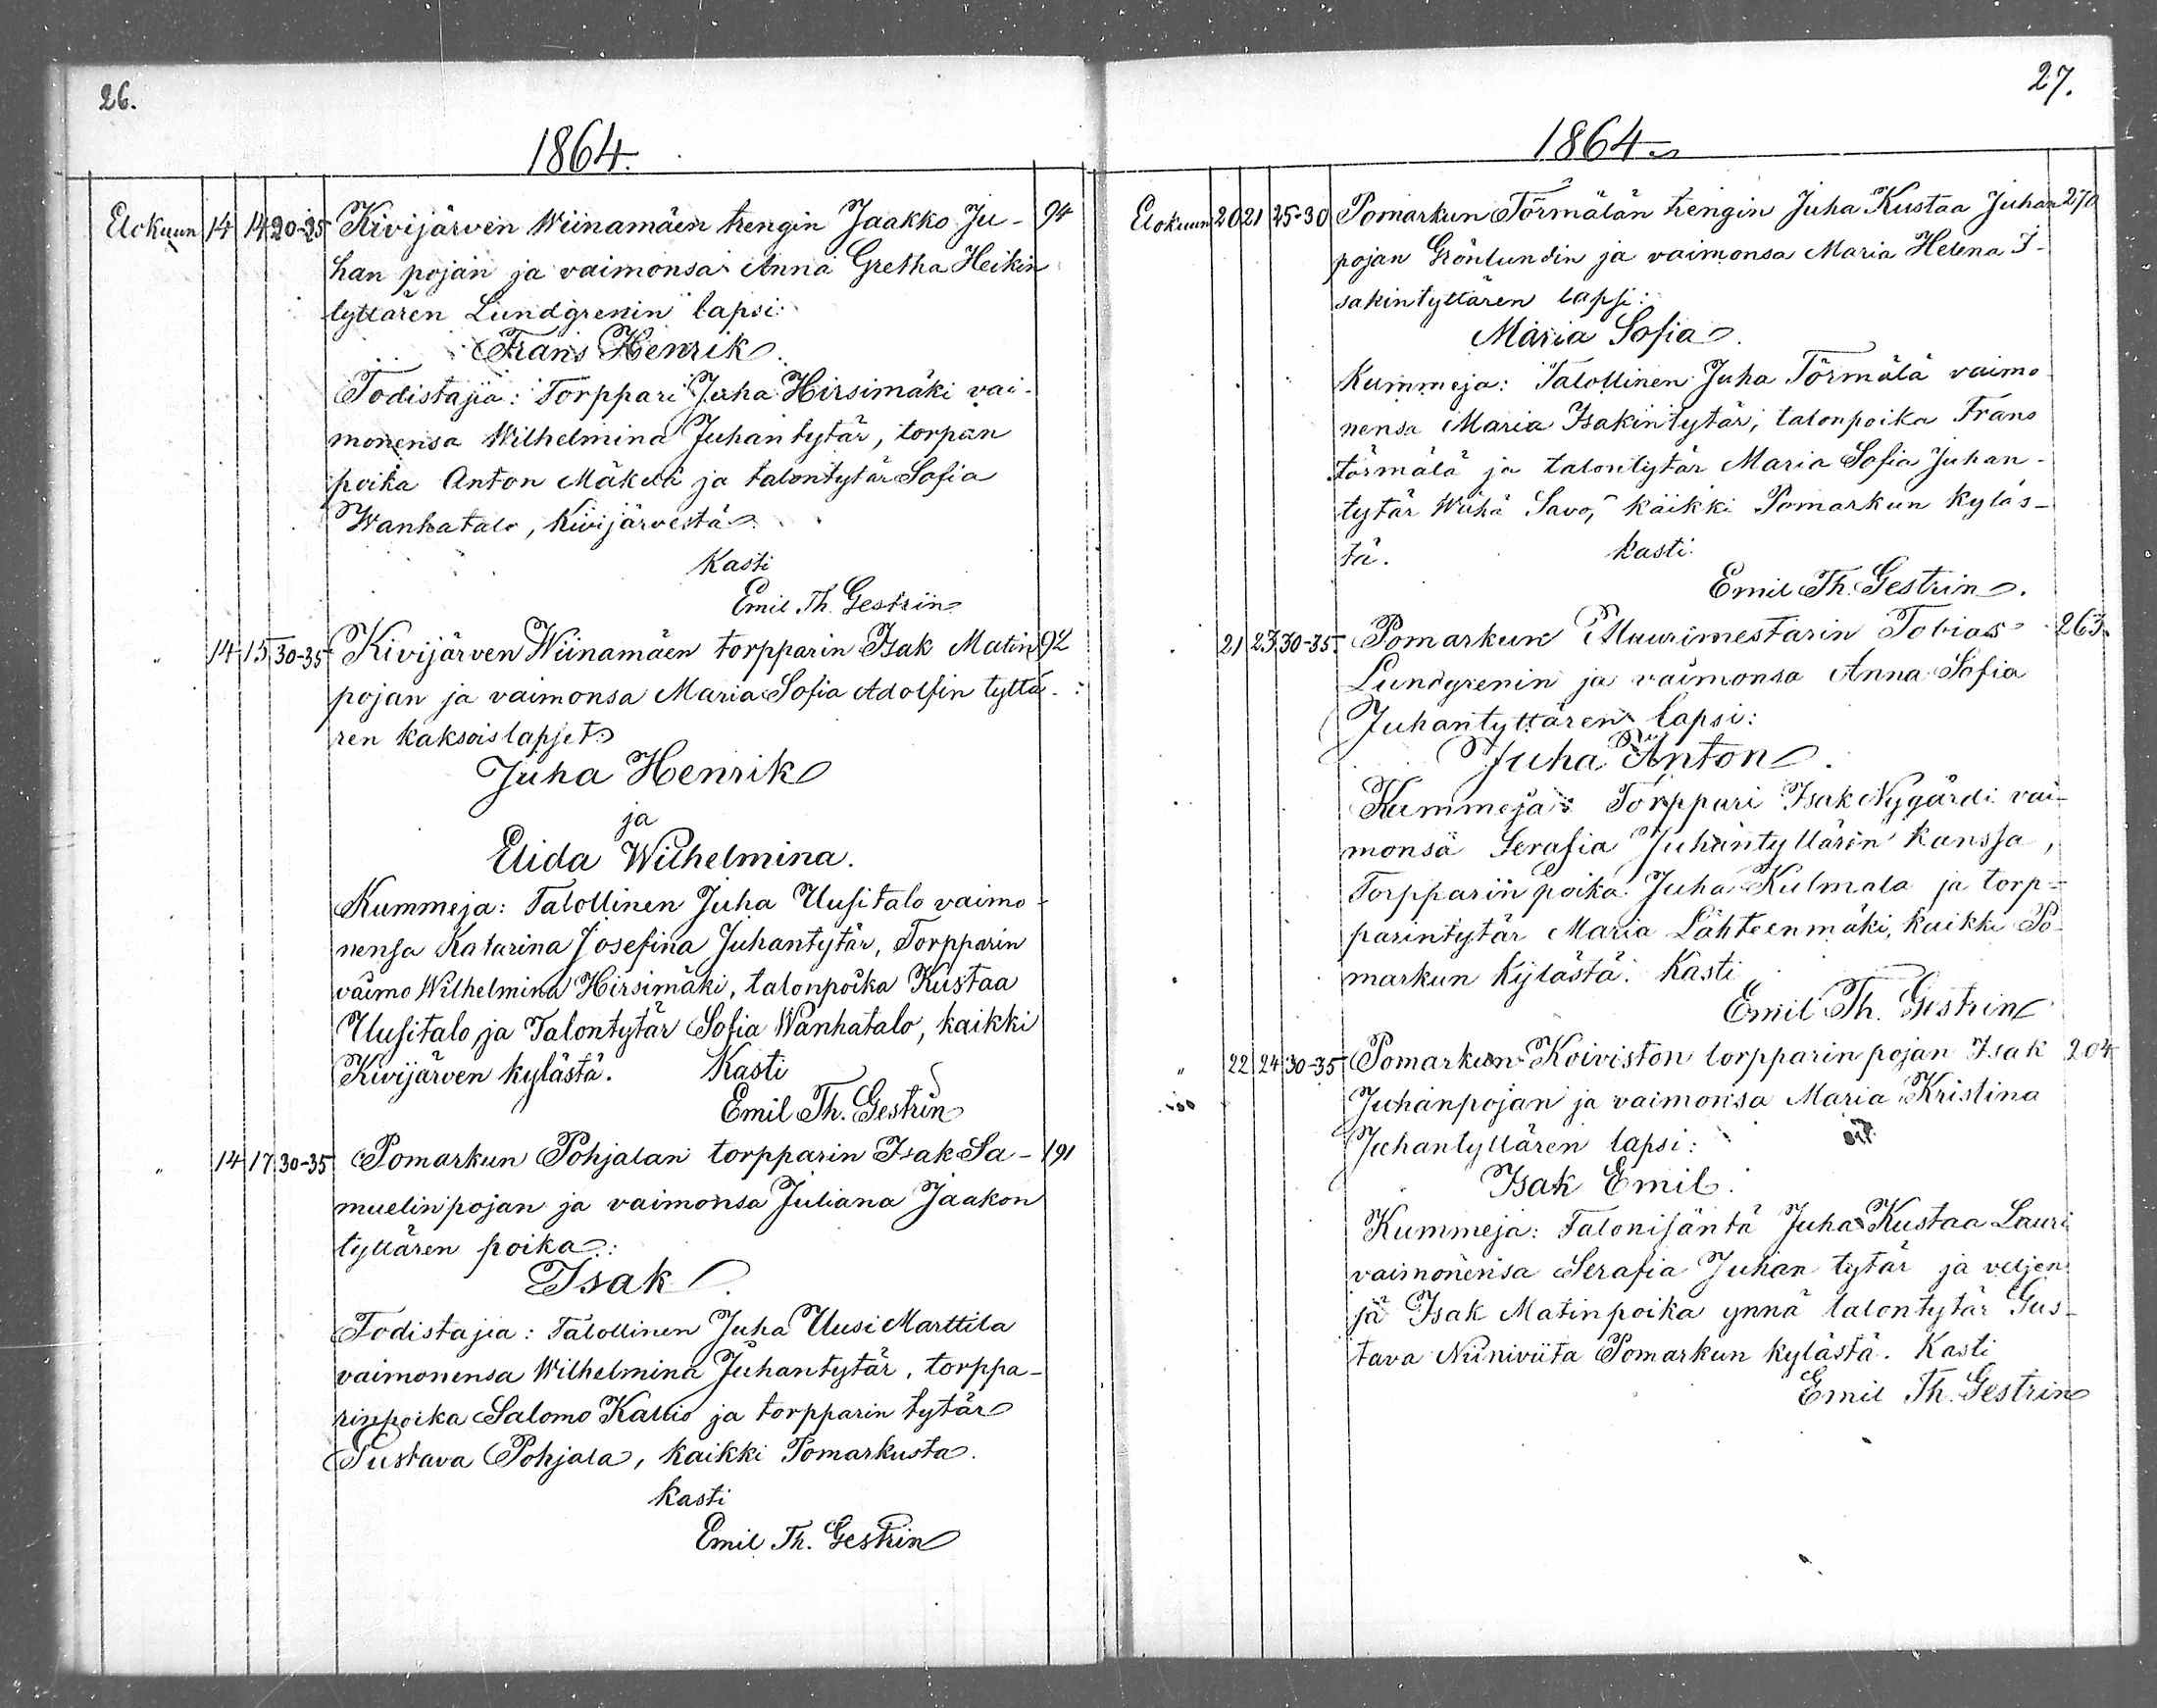 26.
1864.
Elokuun 14 14 20-25 Kivijärven Wiinamäen trengin Jaakko Ju- 94
han pojan ja vaimonsa Anna Gretha Heikin
tyttären Lundgrenin lapsi:
Frans Henrik.
Todistajia: Torppari Juha Hirsimäki vai-
monensa Wilhelmina Juhantytär, torpan
poika Anton Mäkelä ja talontytär Sofia
Wanhatalo, Kivijärvestä.
Kasti
Emil Th. Gestrin
" 14 15 30-35 Kivijärven Wiinamäen torpparin Isak Matin 92
pojan ja vaimonsa Maria Sofia Adolfin tyttä-
ren kaksoislapset:
Juha Henrik
ja
Elida Wilhelmina.
Kummeja: Talollinen Juha Uusitalo vaimo-
nensa Katarina Josefina Juhantytär, Torpparin
vaimo Wilhelmina Hirsimäki, talonpoika Kustaa
Uusitalo ja Talontytär Sofia Wanhatalo, kaikki
Kivijärven kylästä. Kasti
Emil Th. Gestrin
" 14 17 30-35 Pomarkun Pohjalan torpparin Isak Sa- 191
muelinpojan ja vaimonsa Juliana Jaakon
tyttären poika:
Isak.
Todistajia: Talollinen Juha Uusi Marttila
vaimonensa Wilhelmina Juhantytär, torppa-
rinpoika Salomo Kallio ja torpparin tytär
Gustava Pohjala, kaikki Pomarkusta.
Kasti
Emil Th. Gestrin
27.
1864.
Elokuun 20 21 25-30 Pomarkun Törmälän trengin Juha Kustaa Juhan 270
pojan Grönlundin ja vaimonsa Maria Helena I-
sakintyttären lapsi:
Maria Sofia.
Kummeja: Talollinen Juha Törmälä vaimo
nensa Maria Isakintytär, talonpoika Frans
Törmälä ja talontytär Maria Sofia Juhan-
tytär Wähä Savo, kaikki Pomarkun kyläs-
tä. kasti
Emil Th. Gestrin.
21 23 30-35 Pomarkun Muurimestarin Tobias 263
Lundgrenin ja vaimonsa Anna Sofia
Juhantyttären lapsi:
Juha Anton.
Kummeja: Torppari Isak Nygårdi vai-
monsa Serafia Juhantyttärin kanssa,
Torpparin poika Juha Kulmala ja torp-
parintytär Maria Lähteenmäki, kaikki Po-
markun Kylästä. Kasti
Emil Th. Gestrin
" 22 24 30-35 Pomarkun Koiviston torpparin pojan Isak 204
Juhanpojan ja vaimonsa Maria Kristina
Juhantyttären lapsi:
Isak Emil.
Kummeja: Talonisäntä Juha Kustaa Lauri
vaimonensa Serafia Juhan tytär ja veljen
sä Isak Matinpoika ynnä talontytär Gus-
tava Niiniviita Pomarkun kylästä. Kasti
Emil Th. Gestrin